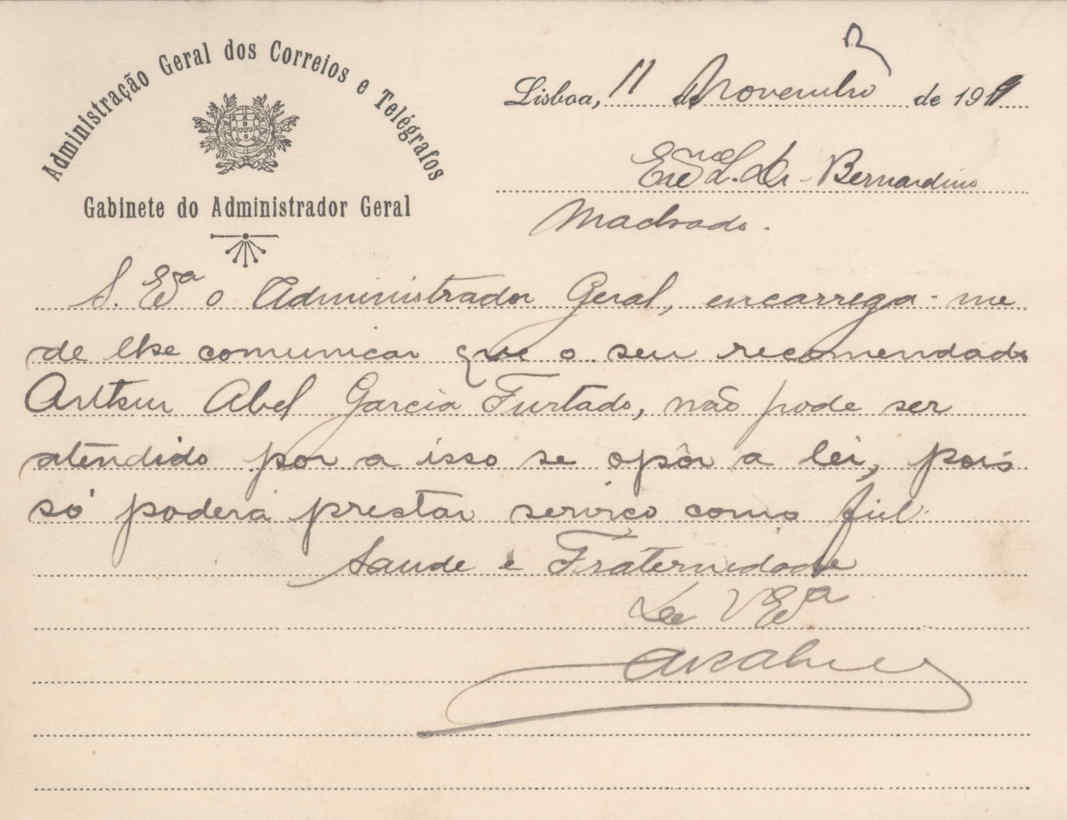 Administração Geral dos Correios e Telégrafos
Gabinete do Administrador Geral
Lisboa, 11 de Novembro de 1911
Exmo Sr. Dr. Bernardino
Machado.
S. Exa o Administrador Geral, encarrega-me
de lhe comunicar que o seu recomendado
Arthur Abel Garcia Furtado, não pode ser
atendido por a isso se opôr a lei, pois
só poderá prestar serviço como fiel.
Saude e Fraternidade
De V Exa